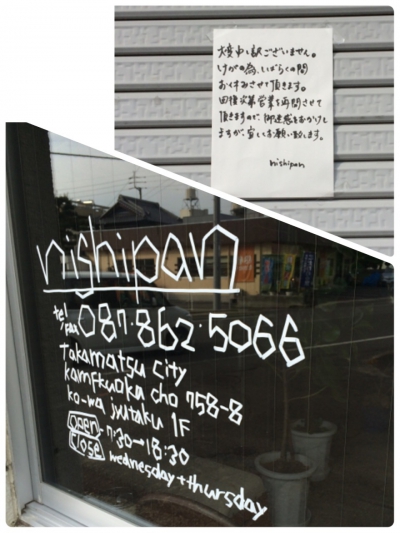 大変申し訳ございません。
けがの為、しばらくの間
お休みさせて頂きます。
回復次第営業を再開させて
頂きますので、御迷惑をおかけし
ますが、宜しくお願い致します。
nishipan
nishipan
tel/fax 087・862・5066
takamatsu city
kamifukuoka cho 758-8
ko-wa jyutaku 1F
open 7:30→18:30
close wednesday+thursday